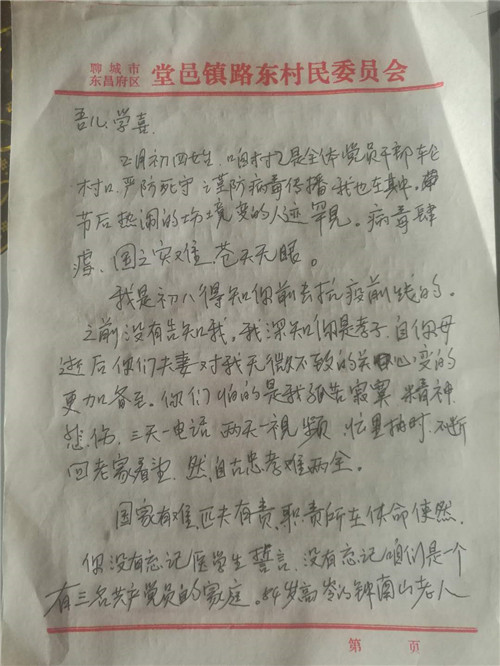 聊城市
东昌府区
堂邑镇路东村民委员会
吾儿,学喜
月初四 咱村又是全体党员干部轮
村口.严防死守.谨防病毒传播.我也在其中.
节后热闹的场境变的人迹罕见。病毒肆
虐、国之灾难.苍天无眼。
我是初八得知你前去抗疫前线的。
之前没有告知我,我深知你是孝子.自你母
逝后你们夫妻对我无微不致的关心变的
更加备至。你们怕的是我孤苦寂寞.精神
悲伤,三天一电话 两天一视频,忙里抽时.不断
回老家看望 然,自古忠孝难两全。
国家有难.匹夫有责,职责所在使命使然.
你没有忘记医学生誓言.没有忘记咱们是一个
有三名共产党员的家庭.84岁高岁的钟南山老人
第 页